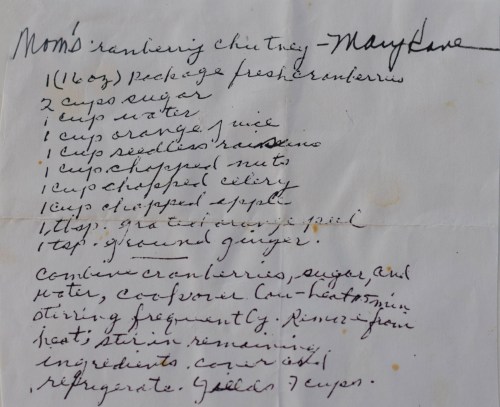 Mom's cranberry chutney - Mary Kane
1 (16 oz) package fresh cranberries
2 cups sugar
1 cup water
1 cup orange juice
1 cup seedless raisins
1 cup chopped nuts
1 cup chopped celery
1 cup chopped apple
1 tbsp. grated orange peel
1 tsp. ground ginger.
Combine cranberries, sugar, and
water, cook over low-heat min
stirring frequently. Remove from
heat; stir in remaining
ingredients. cover and
refrigerate. Yields 7 cups.